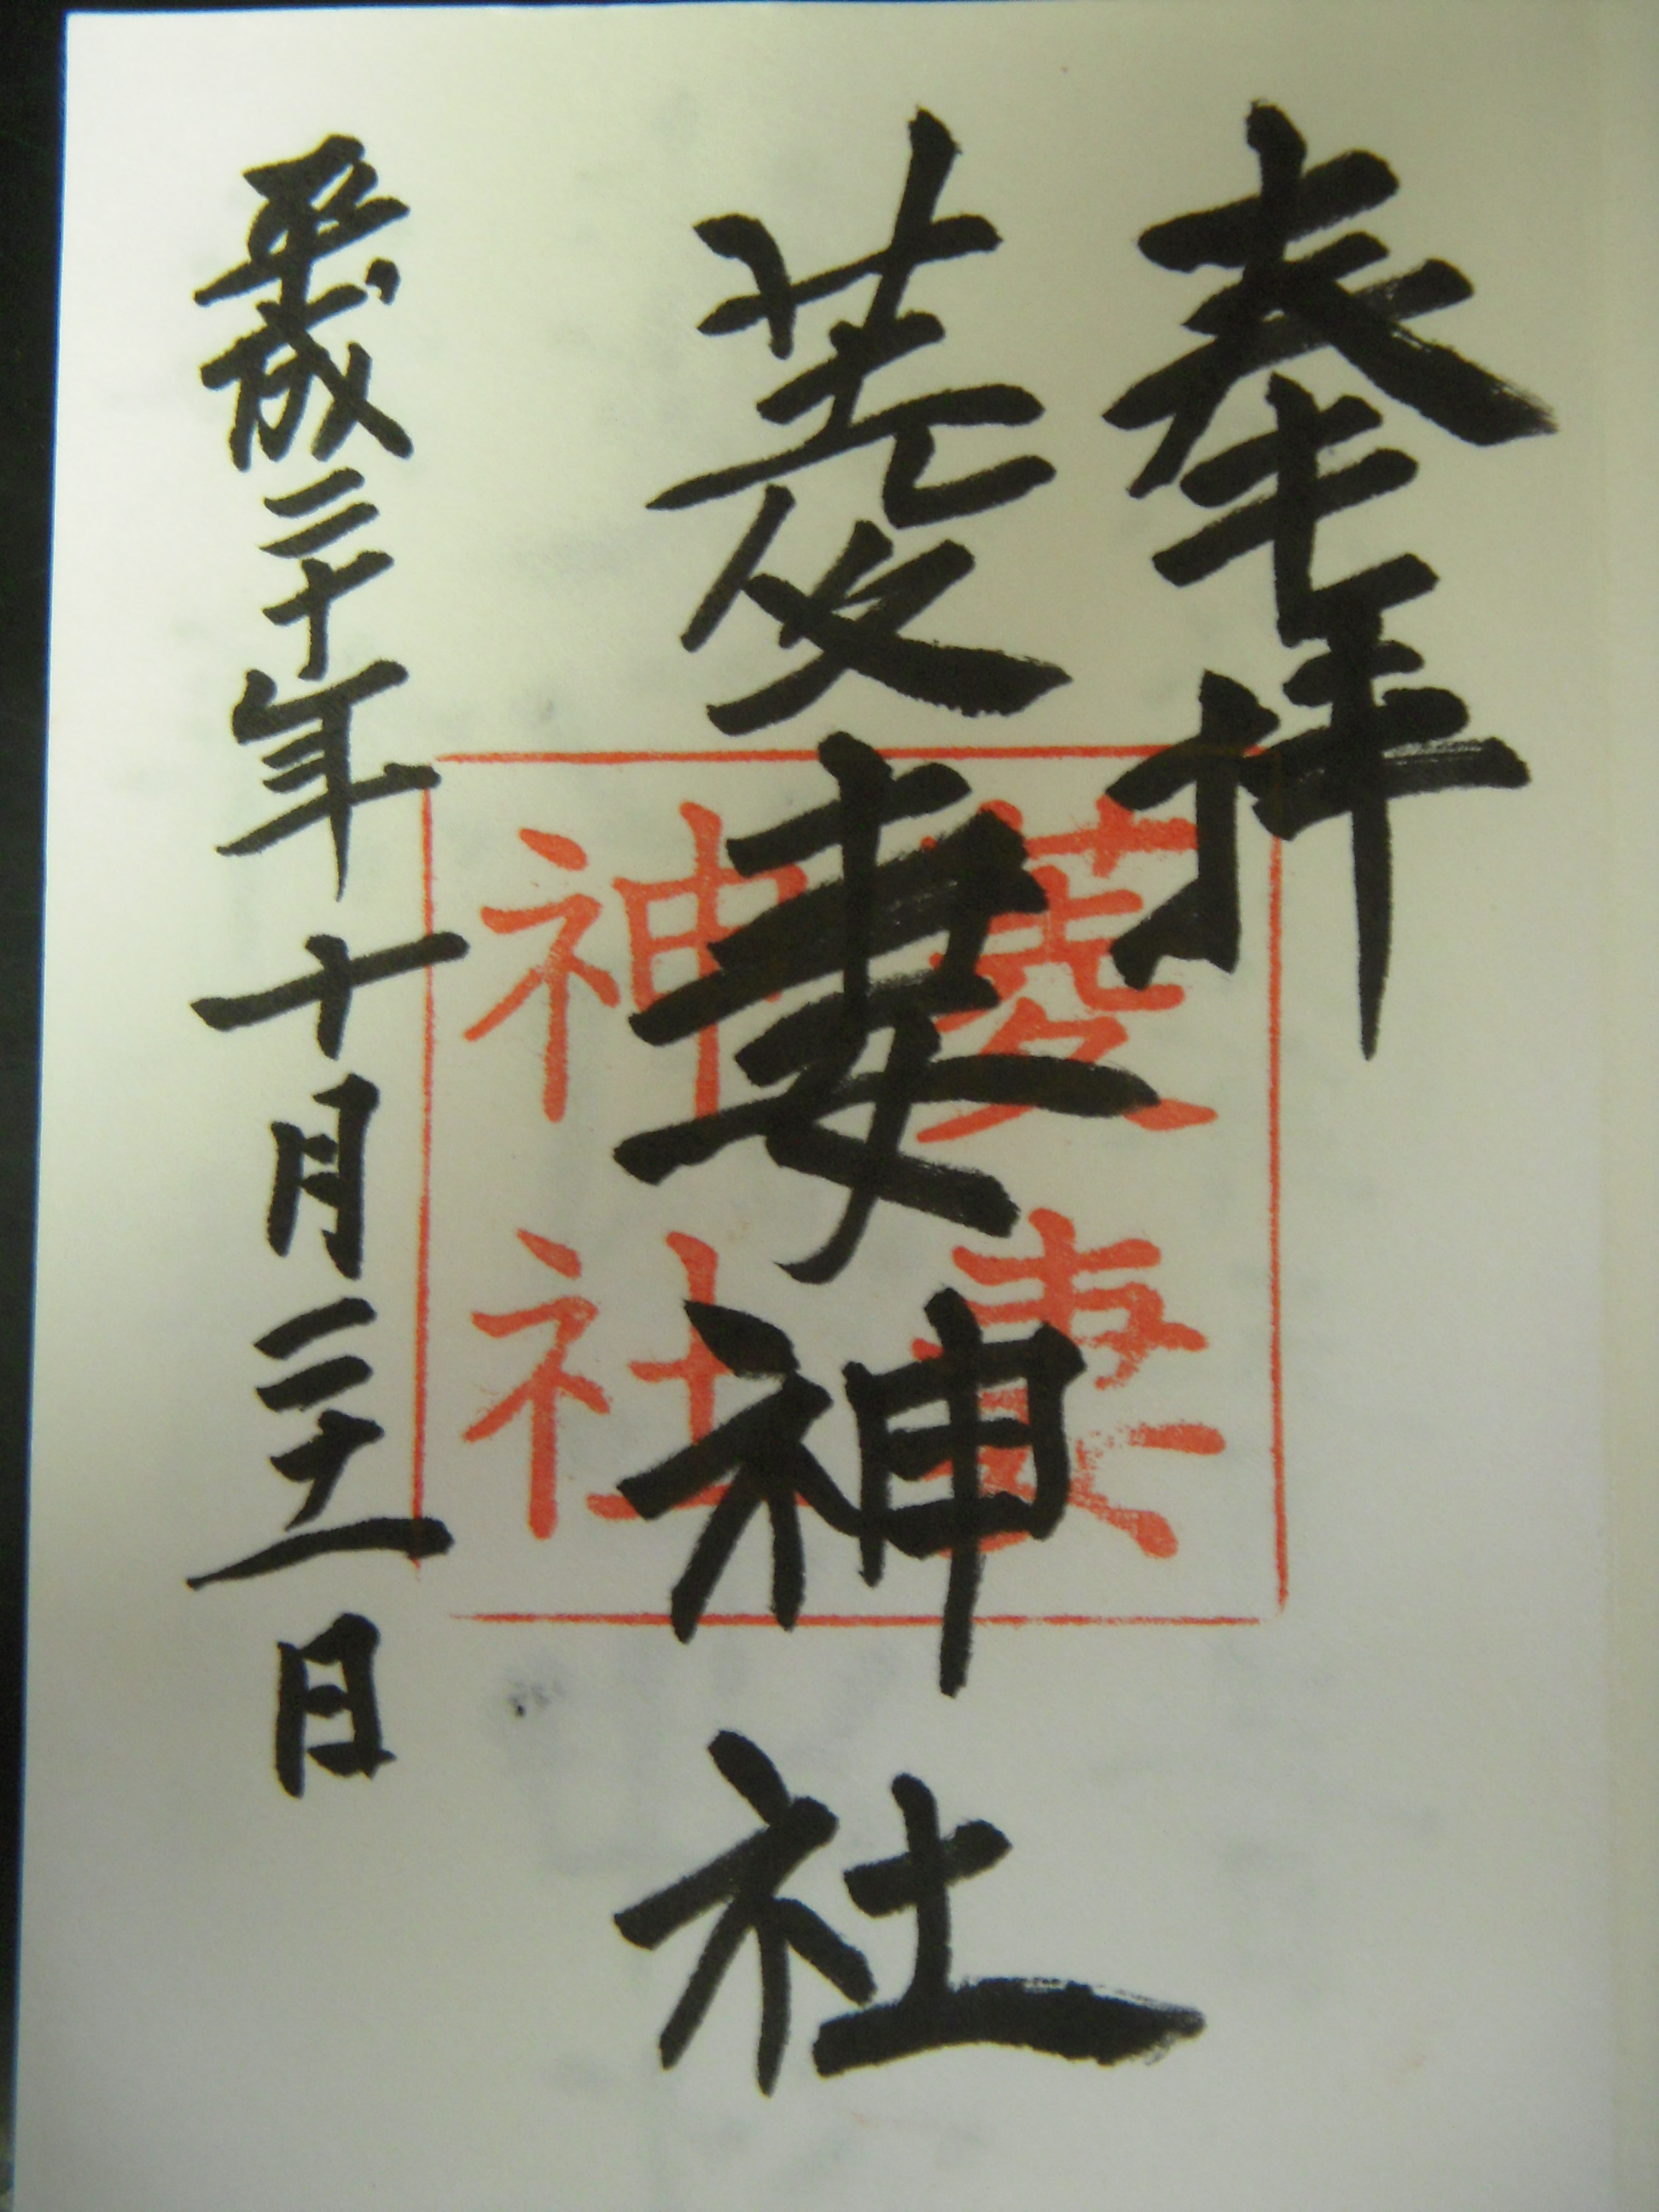 奉拝
菱妻神社
菱妻
神社
平成二十年十月二十一日